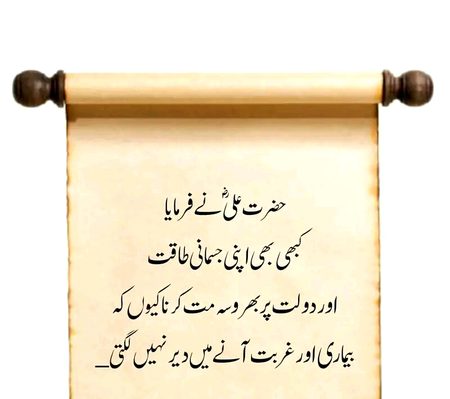 حضرت علیؓ نے فرمایا
کبھی بھی اپنی جسمانی طاقت
اور دولت پر بھروسہ مت کرنا کیوں کہ
بیماری اور غربت آنے میں دیر نہیں لگتی_